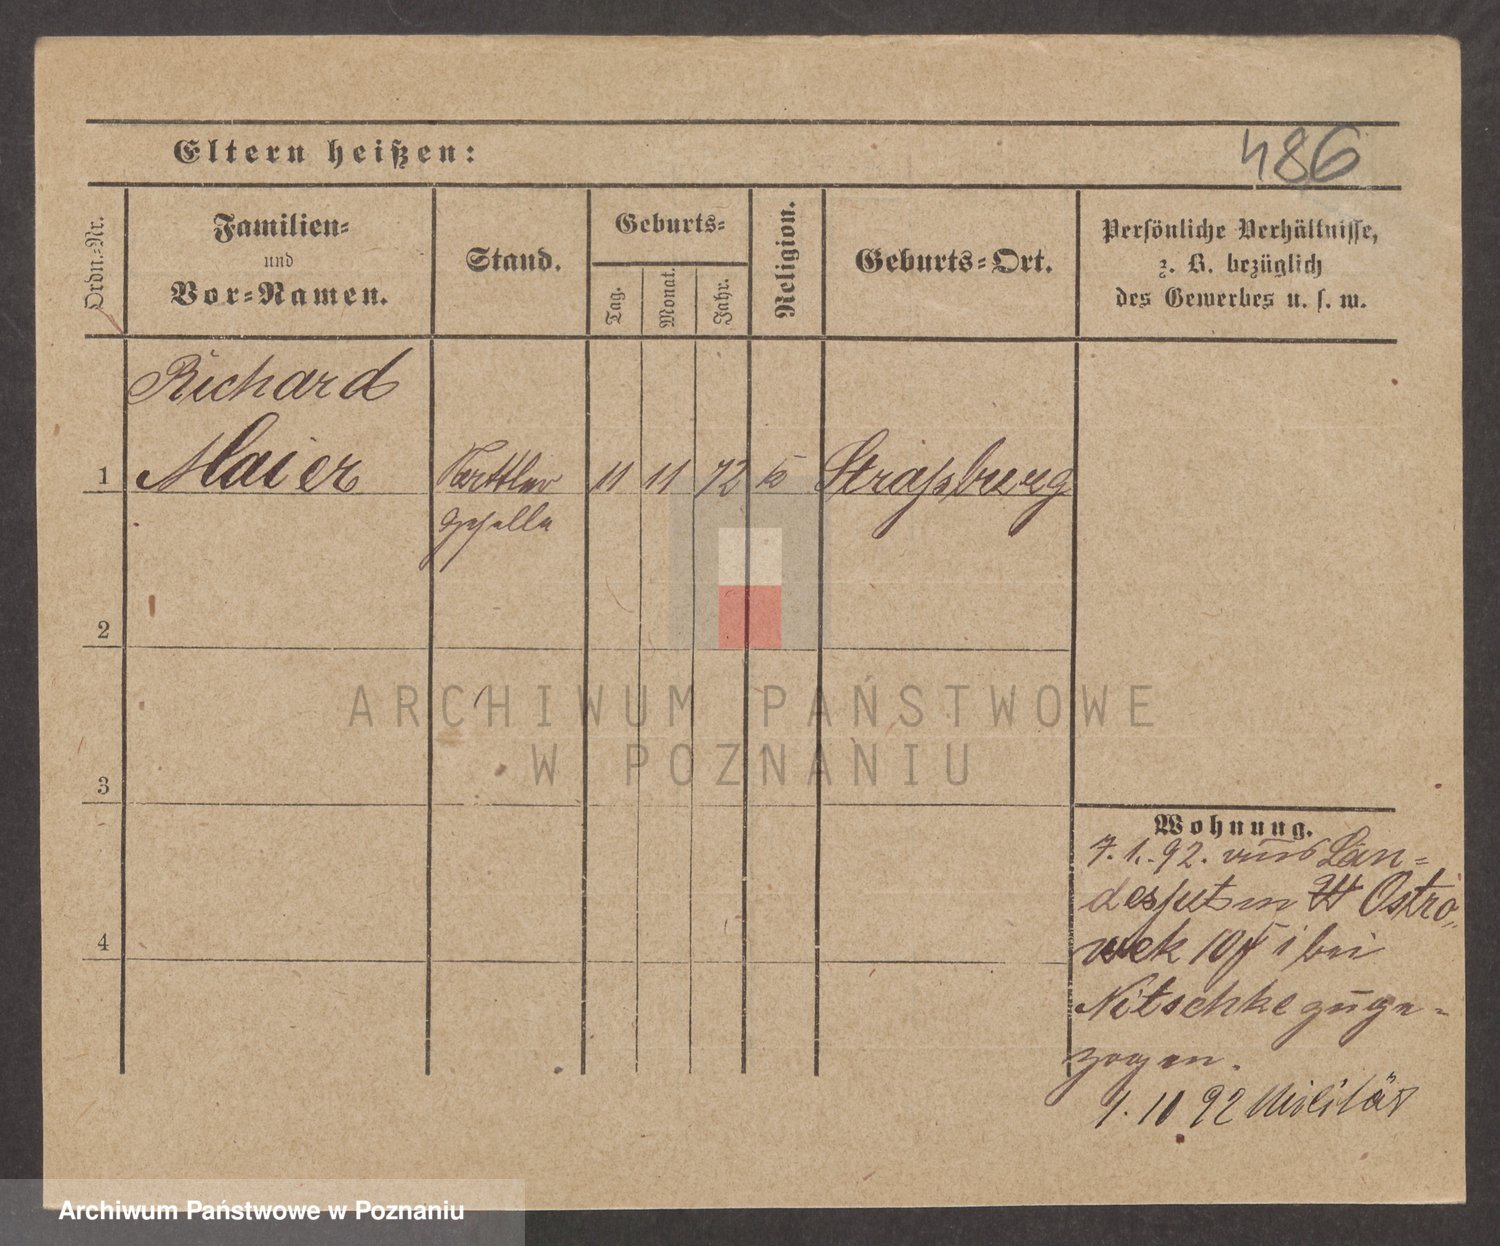 Eltern heißen:
486
Ordn.-Nr.
Familien-
und
Vor-Namen.
Stand.
Geburts-
Tag.
Monat.
Jahr.
Religion.
Geburts-Ort.
Persönliche Verhältnisse,
z. B. bezüglich
des Gewerbes u. s. w.
Richard
1 Maier Sattler 11 11 72 k Straßburg
geselle
2
3
4
ARCHIWUM PAŃSTWOWE
W POZNANIU
Wohnung.
7. 1. 92. aus Lan-
deshut n Ostro-
wek 10 i bei
Nitschke zuge-
zogen.
1. 11 92 Militär
Archiwum Państwowe w Poznaniu